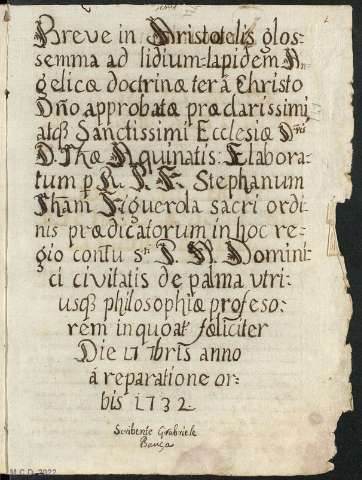 Jesus
Breve in Aristotelis glos-
semma ad lidium-lapidem An-
gelicæ doctrinæ ter á Christo
Dño approbatæ præclarissimi
atq3 Sanctissimi Ecclesiæ
D. Thæ Aquinatis: Elabora-
tum p R. P. F. Stephanum
Jhañ Figuerola sacri ordi
nis prædicatorum in hoc re-
gio contu Sti P. N. Domini-
ci civitatis de palma utri-
usq3 philosophiæ profeso-
rem inquoat fæliciter
Die 17 7bris anno
á reparatione or-
bis 1732
Scribente Grabriele
Bauça
M.C.D.-2022